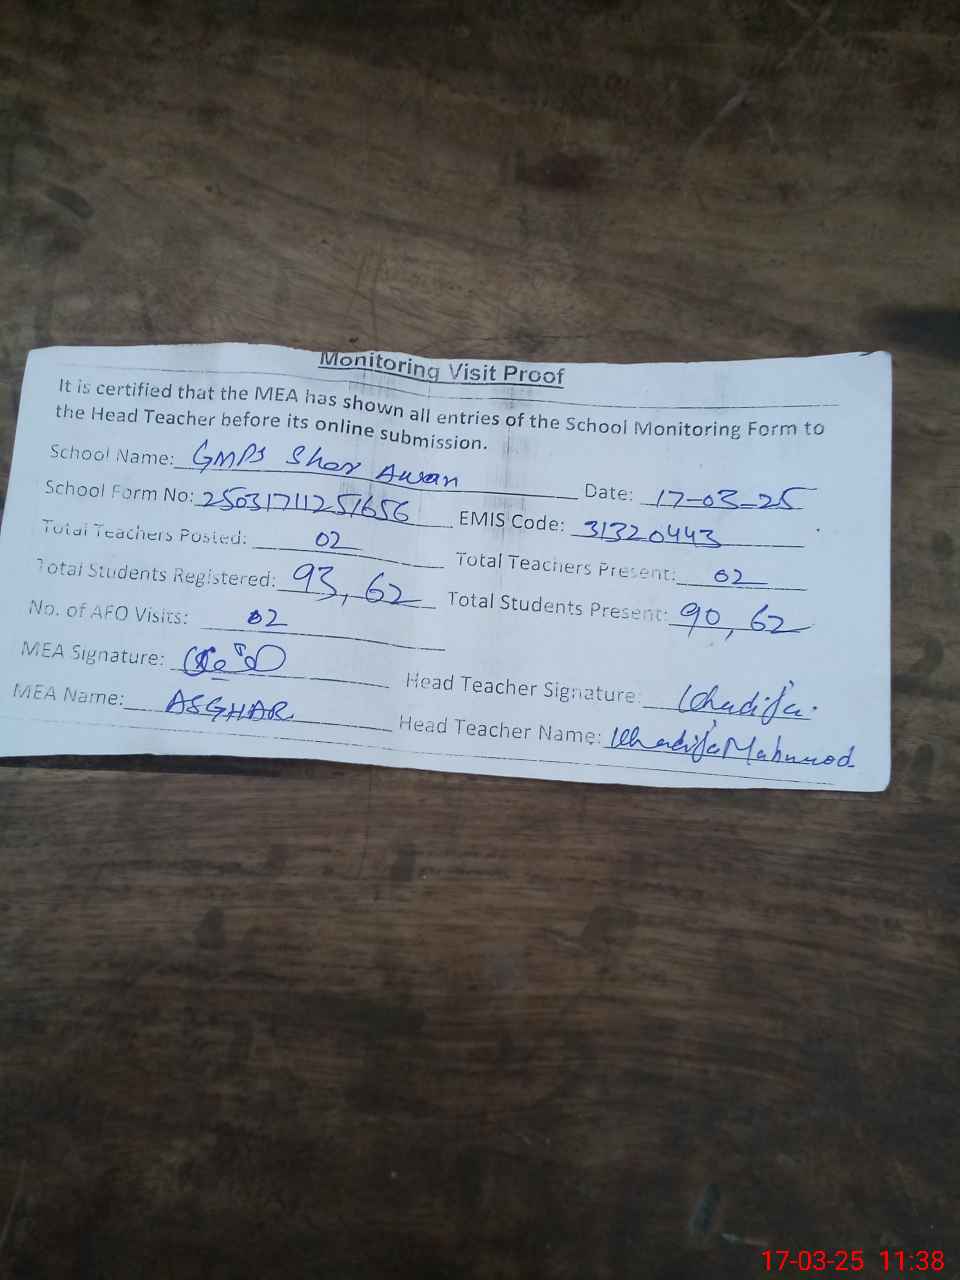 Monitoring Visit Proof
It is certified that the MEA has shown all entries of the School Monitoring Form to
the Head Teacher before its online submission.
School Name: GMPS Sher Awan Date: 17-03-25
School Form No: 25031711251656 EMIS Code: 31320443
Total Teachers Posted: 02 Total Teachers Present: 02
Total Students Registered: 93, 62 Total Students Present: 90, 62
No. of AEO Visits: 02
MEA Signature: Head Teacher Signature: Khadija.
MEA Name: ASGHAR Head Teacher Name: Khadija Mahmood
17-03-25 11:38